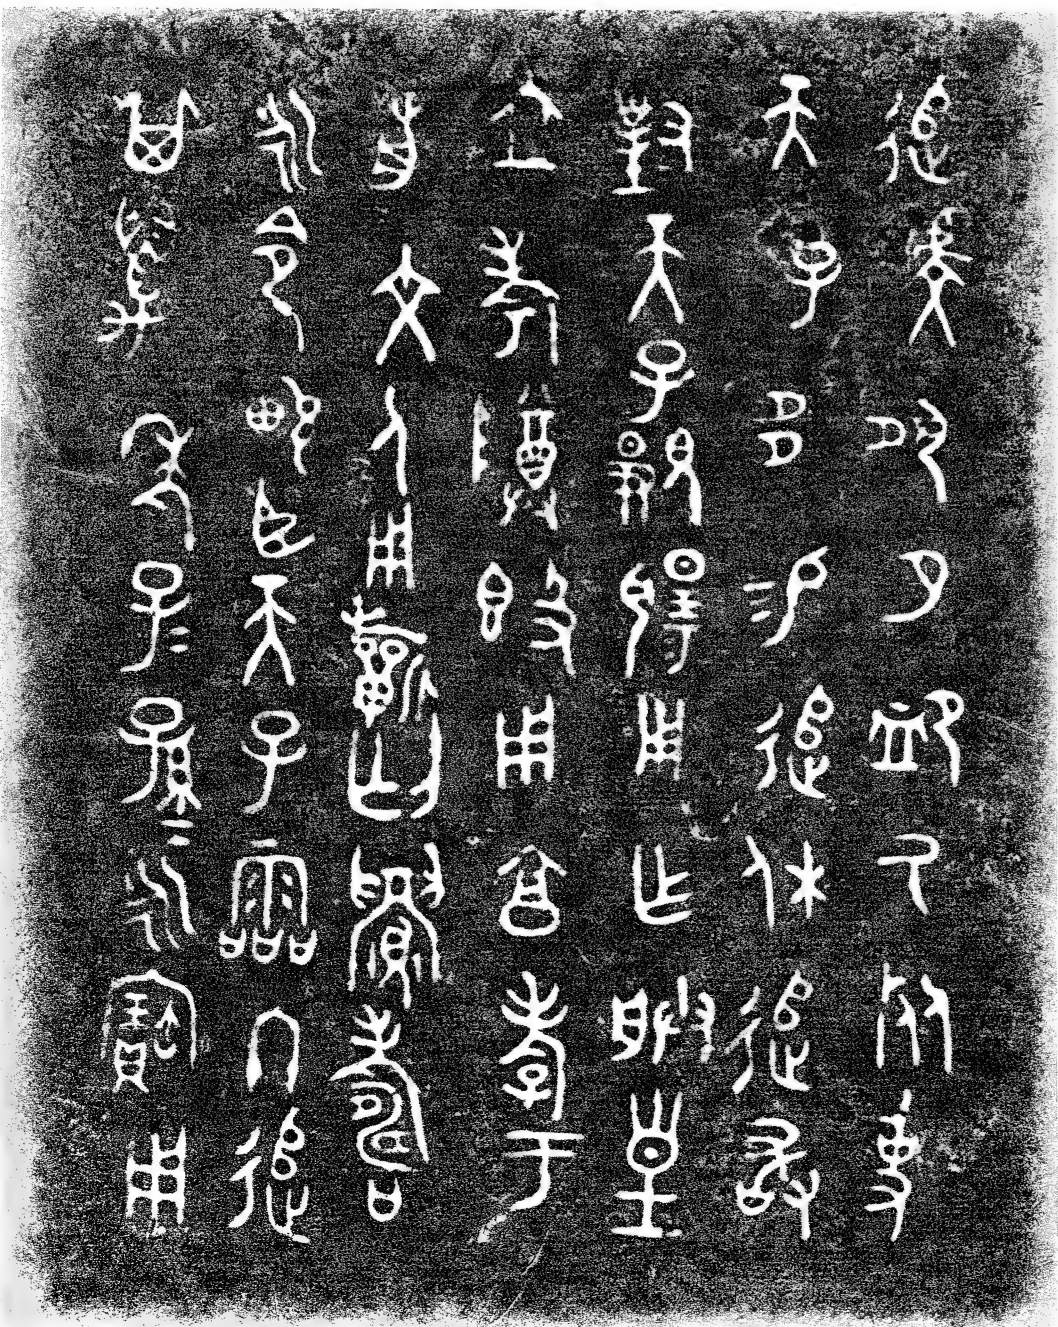 追虔夙夕卹氒死事
天子多易追休追敢
對天子覭揚用乍朕皇
且考𬯚𣪘用亯孝于
前文人用𣄨匃眉壽
永令畯臣天子霝冬追
其萬年子=孫=永寶用